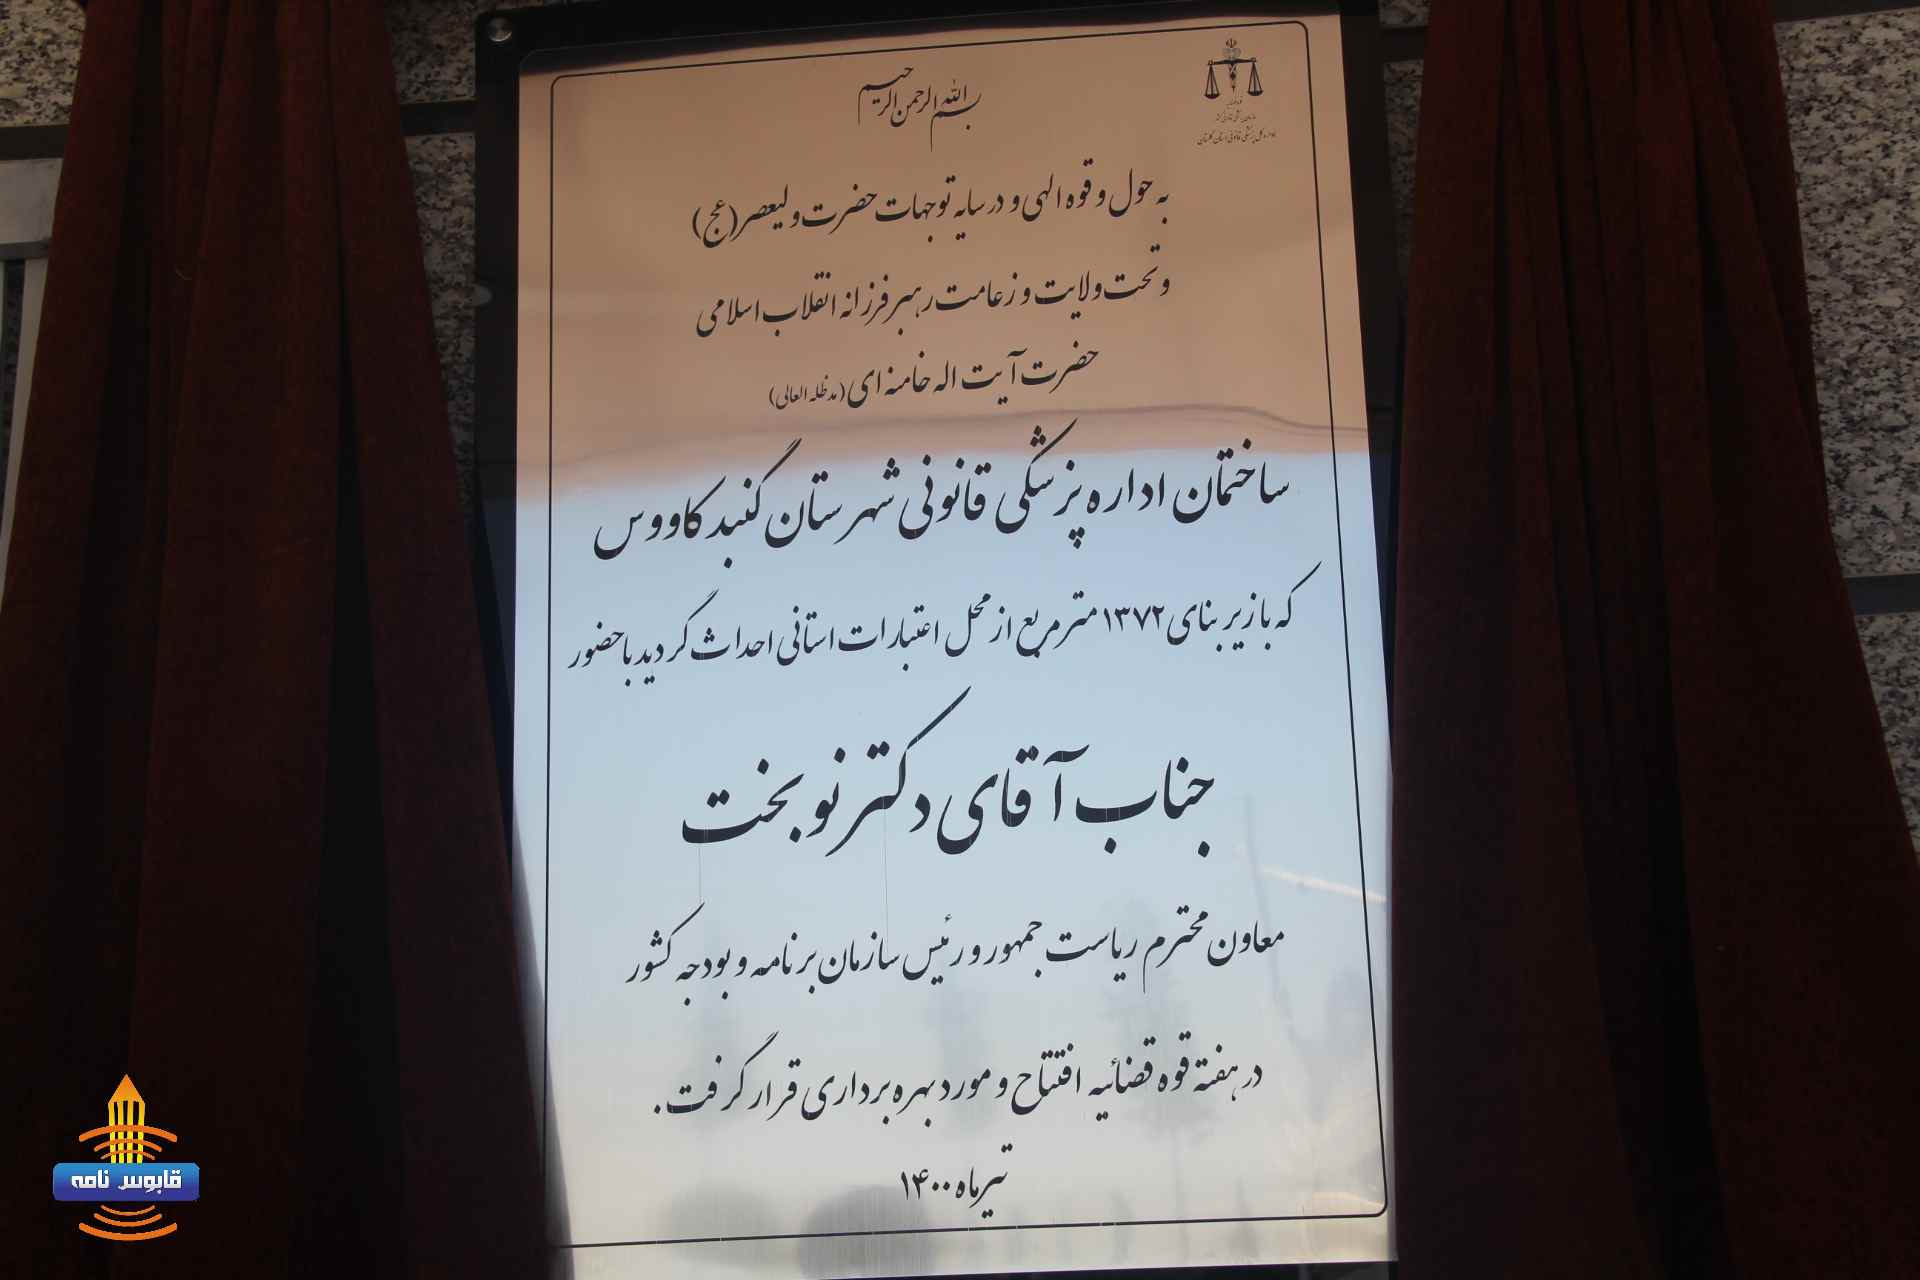 بسم الله الرحمن الرحیم
قوه قضائیه
سازمان پزشکی قانونی کشور
اداره کل پزشکی قانونی استان گلستان
به حول و قوه الهی و در سایه توجهات حضرت ولیعصر (عج)
و تحت ولایت و زعامت رهبر فرزانه انقلاب اسلامی
حضرت آیت اله خامنه ای (مدظله العالی)
ساختمان اداره پزشکی قانونی شهرستان گنبد کاووس
که با زیر بنای ۱۳۷۲ متر مربع از محل اعتبارات استانی احداث گردید با حضور
جناب آقای دکتر نوبخت
معاون محترم ریاست جمهور و رئیس سازمان برنامه و بودجه کشور
در هفته قوه قضائیه افتتاح و مورد بهره برداری قرار گرفت.
تیرماه ۱۴۰۰
قابوس نامه